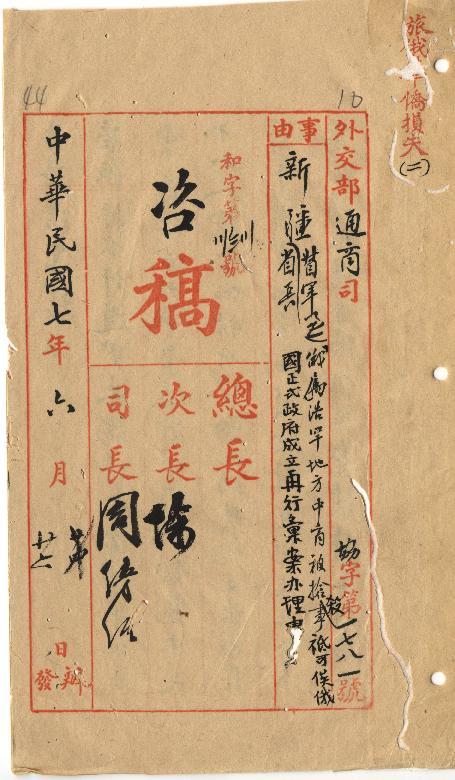 旅俄華僑損失(二)
10
44
外交部通商司
協字第一七八一號
事由
新疆督軍省長
俄屬浩罕地方中商被搶殺事祇可俟俄
國正式政府成立再行彙案办理由
和字第 號
咨
稿
總長
次長
陳
司長
周傳經
中華民國七年六月
日辦
廿六
發